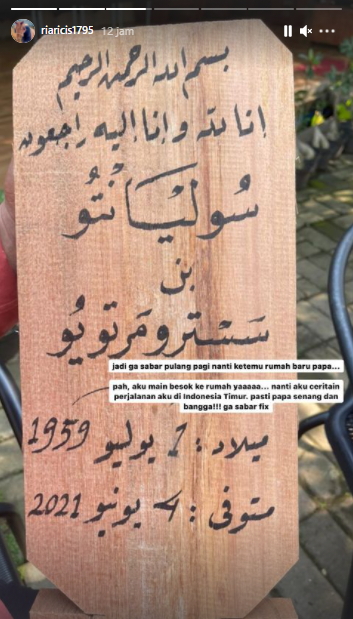 riaricis1795 12 jam
بسم الله الرحمن الرحيم
انا لله وانا إليه راجعون
سُولِيَانْتُو
بن
سَسْترومَرتويُو
jadi ga sabar pulang pagi nanti ketemu rumah baru papa...
pah, aku main besok ke rumah yaaaaa... nanti aku ceritain
perjalanan aku di Indonesia Timur. pasti papa senang dan
bangga!!! ga sabar fix
ميلاد : 1 يوليو 1959
متوفى : 4 يونيو 2021